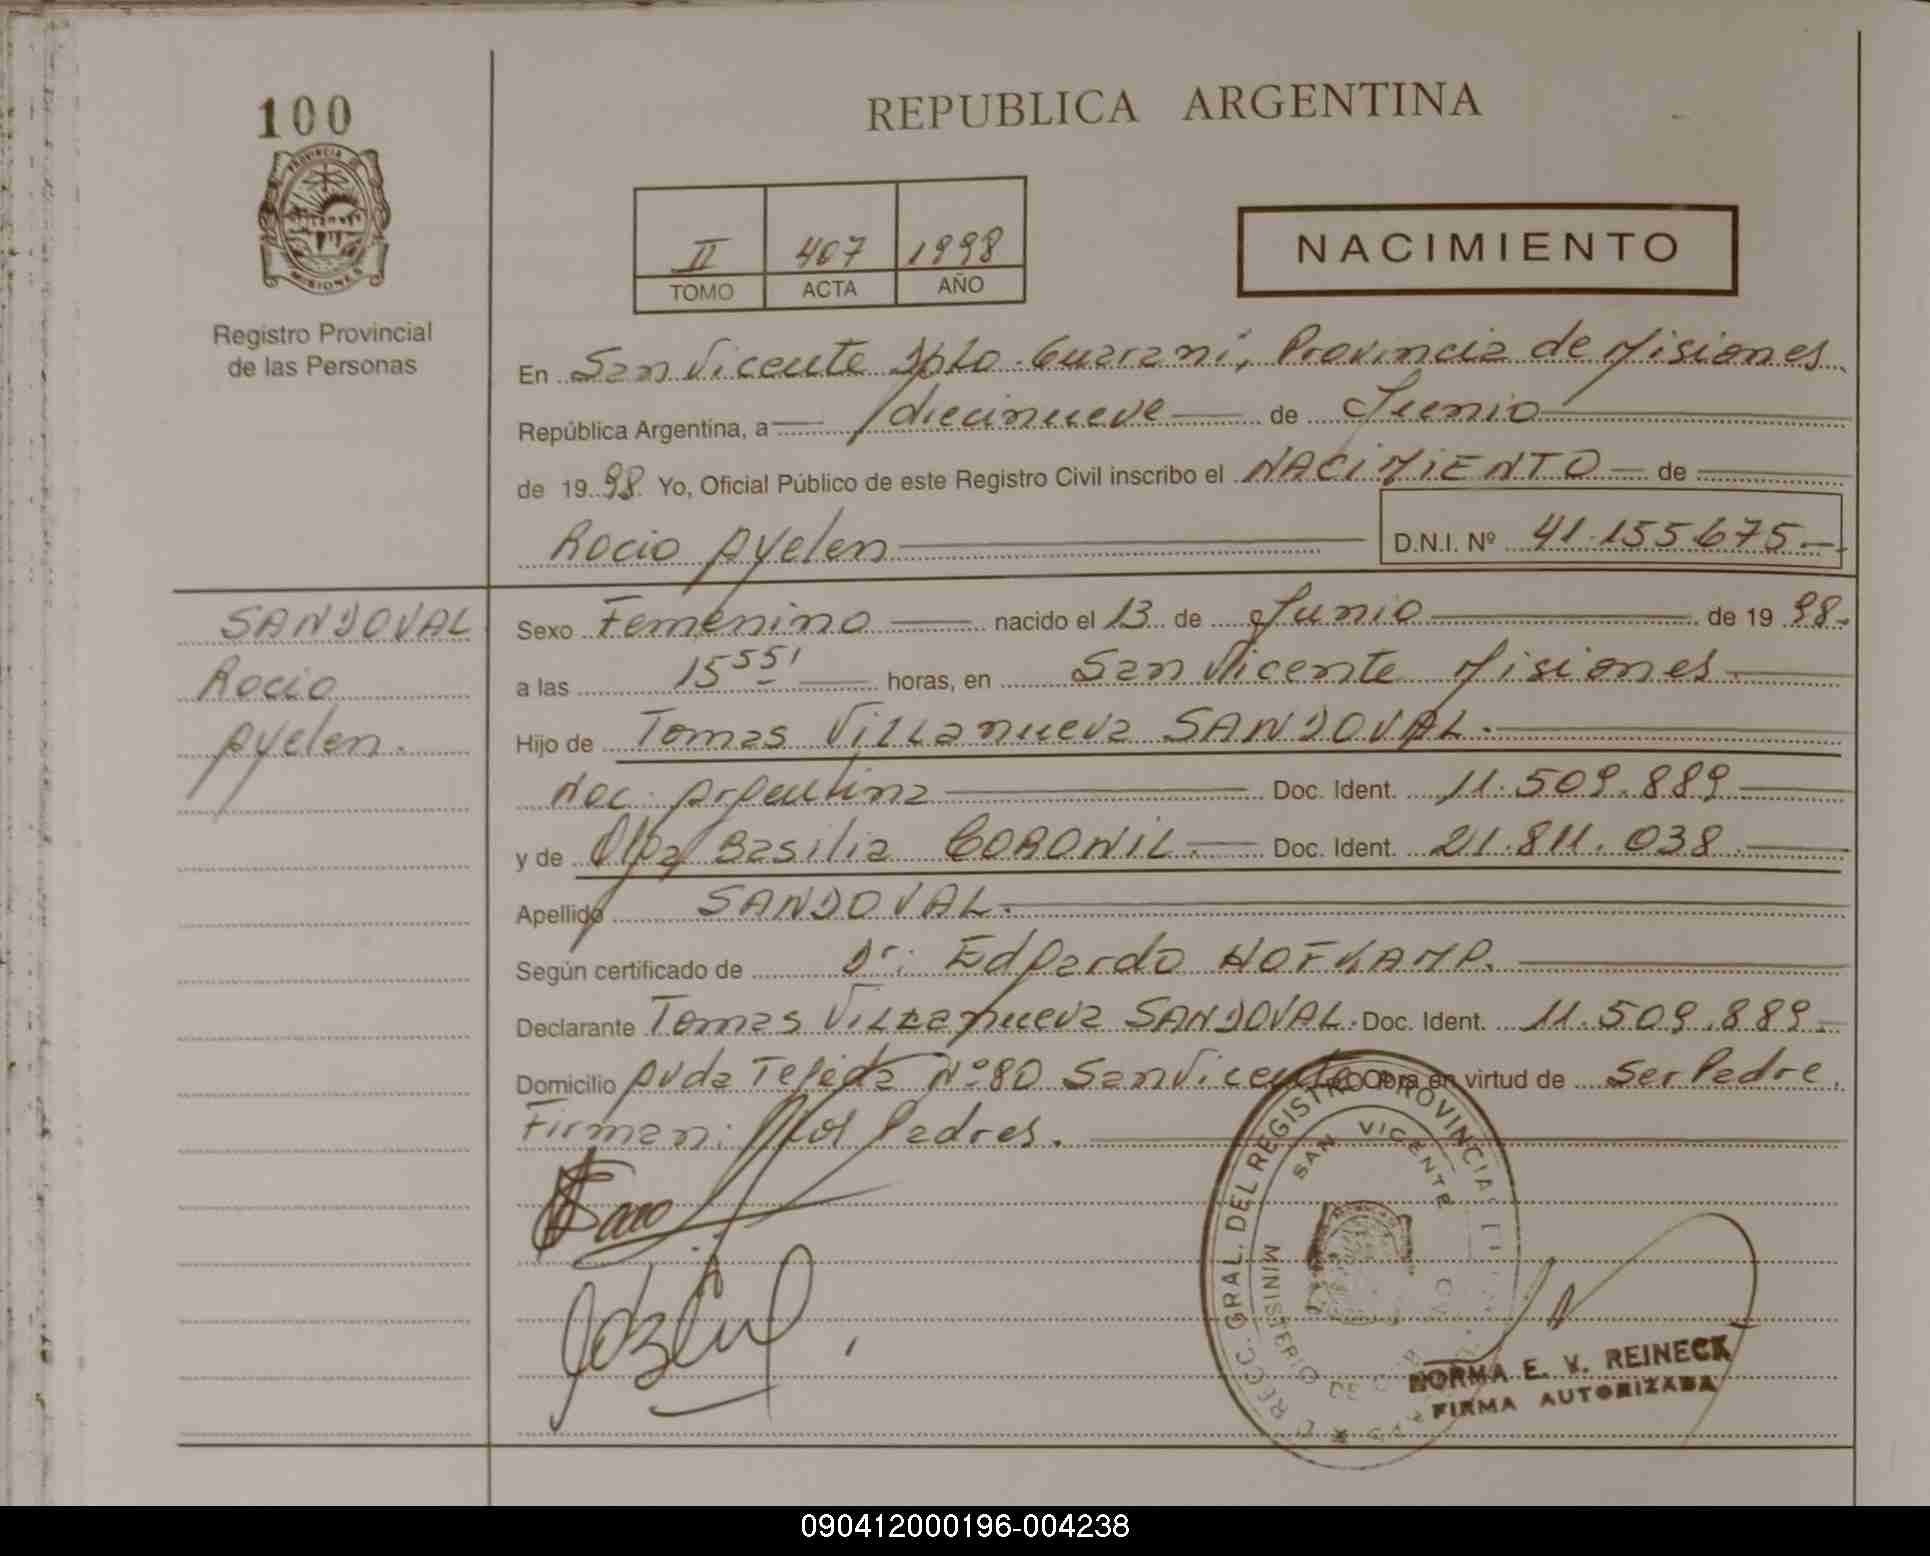 100
PROVINCIA DE
MISIONES
Registro Provincial
de las Personas
REPUBLICA ARGENTINA
II 407 1998
TOMO ACTA AÑO
NACIMIENTO
En San Vicente Dpto. Guarani, Provincia de Misiones
República Argentina, a diecinueve de Junio
de 19 98 Yo, Oficial Público de este Registro Civil inscribo el NACIMIENTO de
Rocio Ayelen D.N.I. Nº 41.155.675.-
SANDOVAL
Rocio
Ayelen.
Sexo Femenino nacido el 13 de Junio de 19 98.
a las 15 55' horas, en San Vicente Misiones
Hijo de Tomas Villanueva SANDOVAL.
Nac. Argentina Doc. Ident. 11.509.889
y de Olga Basilia CORONIL. Doc. Ident. 21.811.038
Apellido SANDOVAL.
Según certificado de Dr: Edgardo HOFKAMP.
Declarante Tomas Villanueva SANDOVAL. Doc. Ident. 11.509.889
Domicilio Avda Tejeda Nº 80 San Vicente Obra en virtud de Ser Padre.
Firman: los Padres.
DIRECC. GRAL. DEL REGISTRO PROVINCIAL
SAN VICENTE
MINISTERIO DE GOB
NORMA E. V. REINECK
FIRMA AUTORIZADA
090412000196-004238